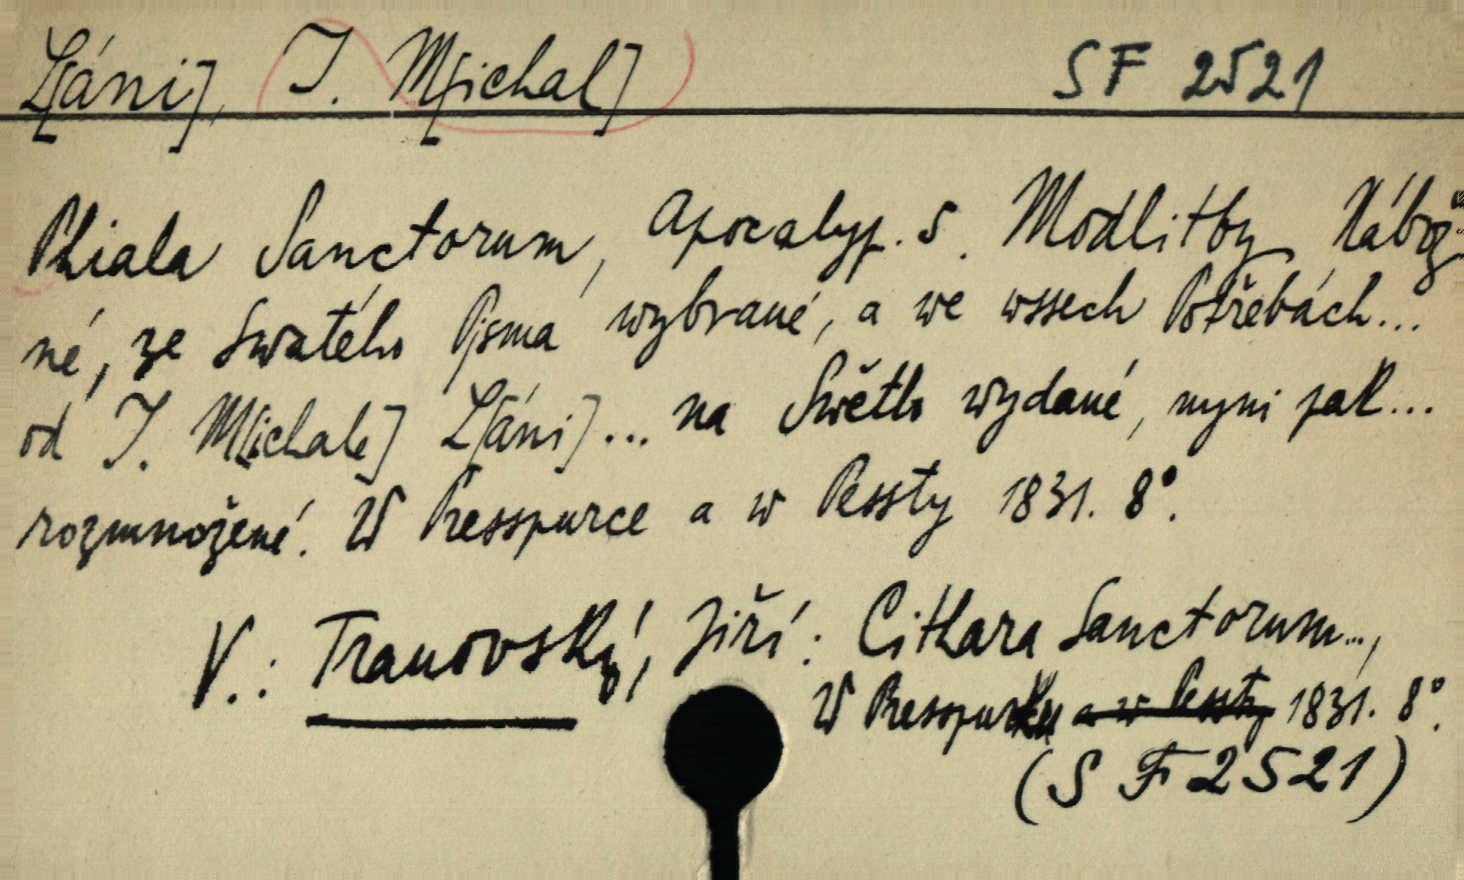 L[áni], J. M[ichal] SF 2521
Phiala Sanctorum, Apocalyp. 5. Modlitby Nábož-
né, ze Swatého Pjsma wybrané, a we wssech Potřebách...
od J. M[ichale] L[áni]... na Swětlo wydané, nyni pak...
rozmnožené. W Presspurce a w Pessty 1831. 8°.
V.: Tranovský, Jiří: Cithara Sanctorum...,
W Presspurku a w Pessty 1831. 8°.
(SF 2521)